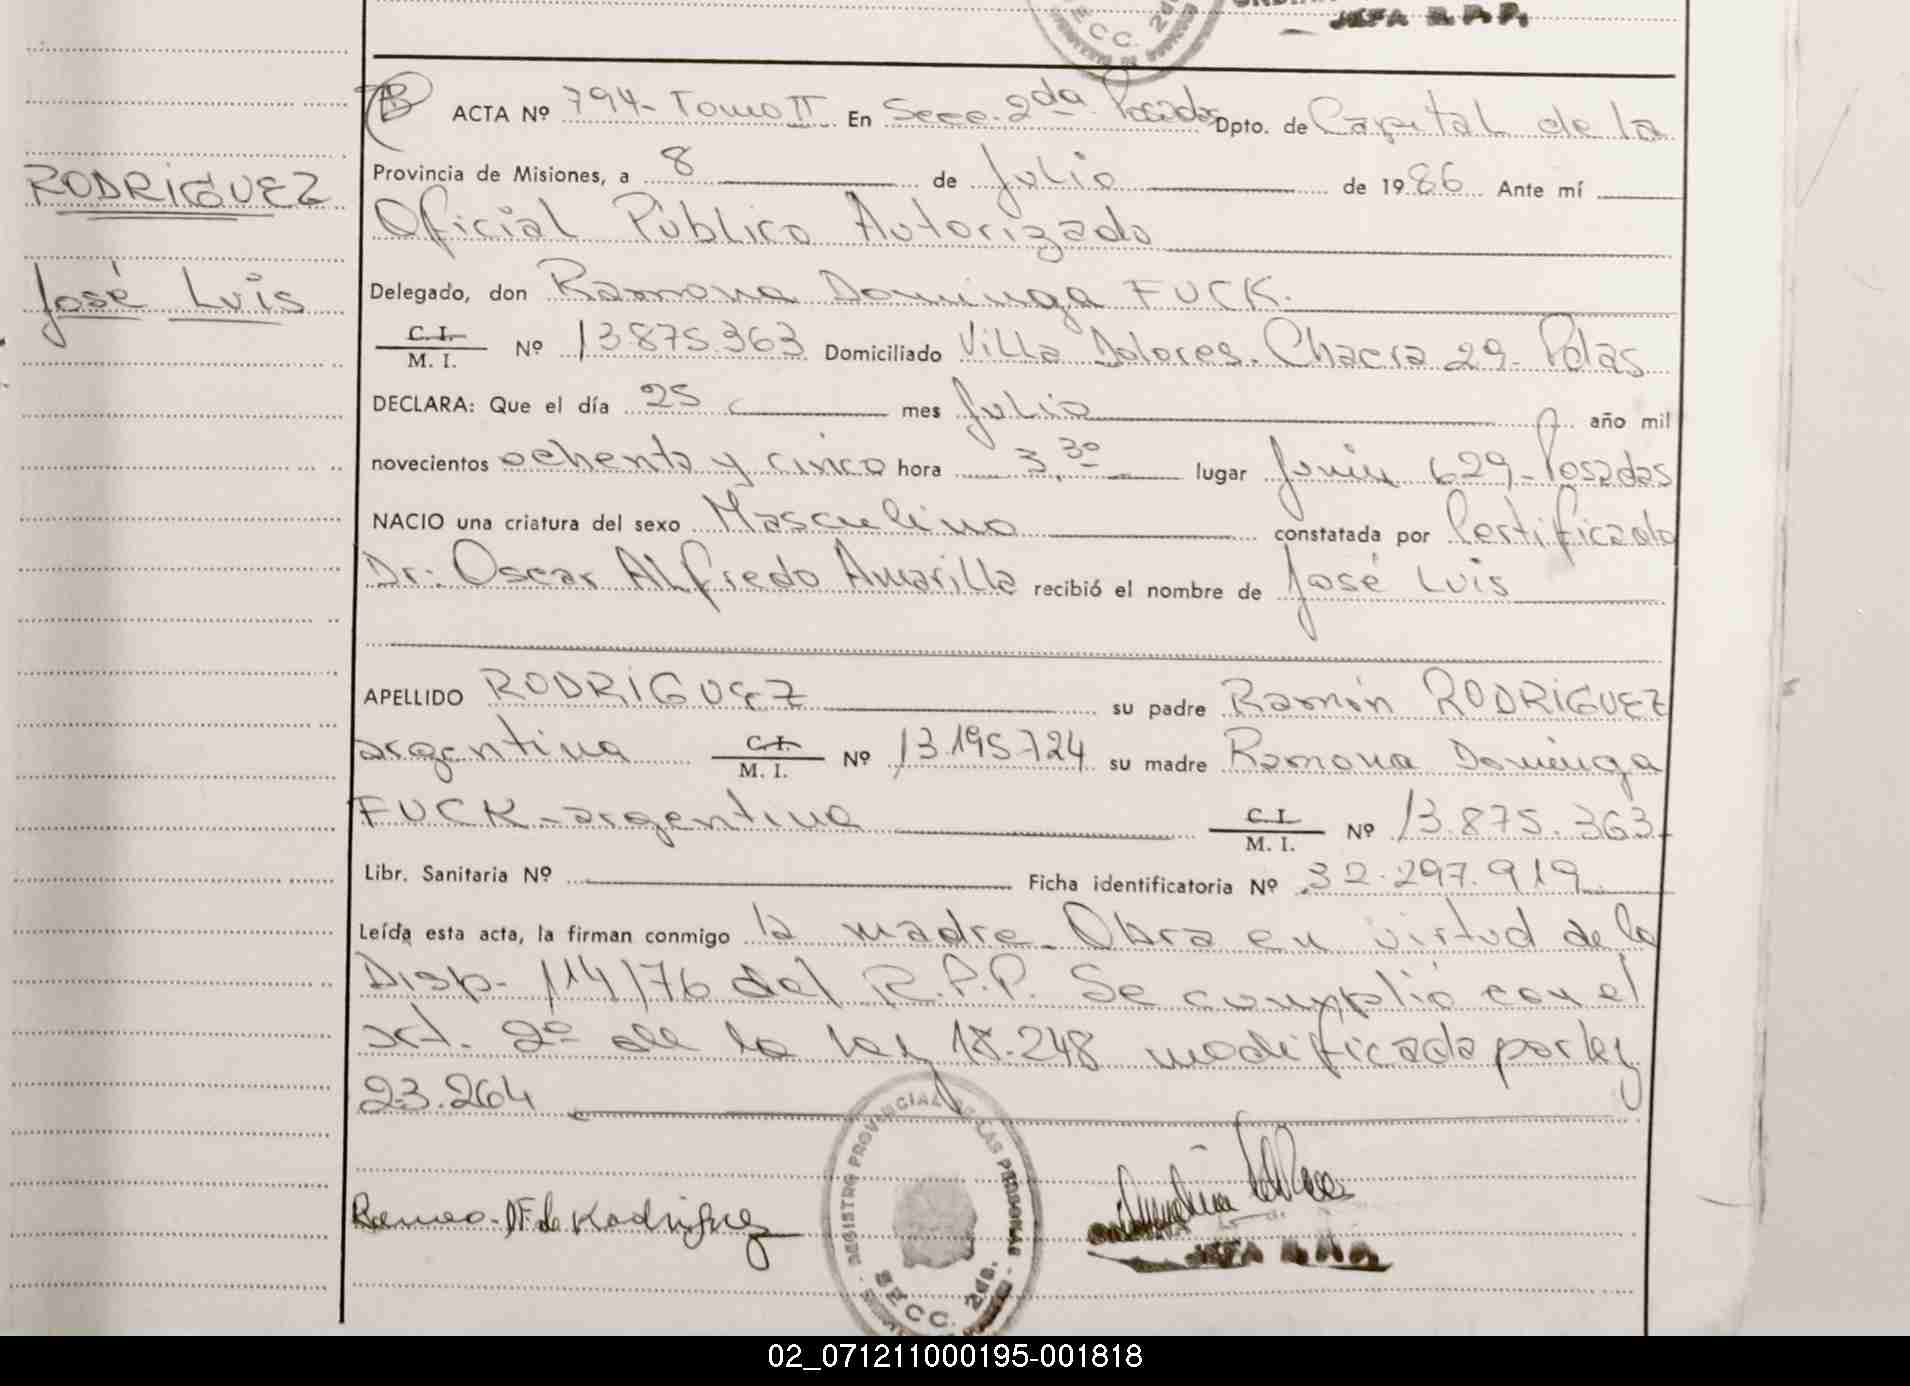 JEFA R. P. P.
SECC. 2da.
ACTA Nº 794 - Tomo II En Secc. 2da Posadas Dpto. de Capital de la
Provincia de Misiones, a 8 de Julio de 1986 Ante mí
RODRIGUEZ
Oficial Público Autorizado
José Luis
Delegado, don Ramona Dominga FUCK.
C. I.
M. I. Nº 13.875.363 Domiciliado Villa Dolores. Chacra 29 - Pdas
DECLARA: Que el día 25 mes Julio año mil
novecientos ochenta y cinco hora 3,30 lugar Junín 629 - Posadas
NACIO una criatura del sexo Masculino constatada por Certificado
Dr. Oscar Alfredo Amarilla recibió el nombre de José Luis
APELLIDO RODRIGUEZ su padre Ramón RODRIGUEZ
argentina C. I. M. I. Nº 13.195.724 su madre Ramona Dominga
FUCK - argentina C. I. M. I. Nº 13.875.363 -
Libr. Sanitaria Nº Ficha identificatoria Nº 32.297.919
Leída esta acta, la firman conmigo la madre. Obra en virtud de la
Disp. 114/76 del R.P.P. Se cumplió con el
art. 2º de la ley 18.248 modificada por ley
23.264
REGISTRO PROVINCIAL DE LAS PERSONAS
SECC. 2da.
Ramona D F de Rodriguez
JEFA R. P. P.
02_071211000195-001818